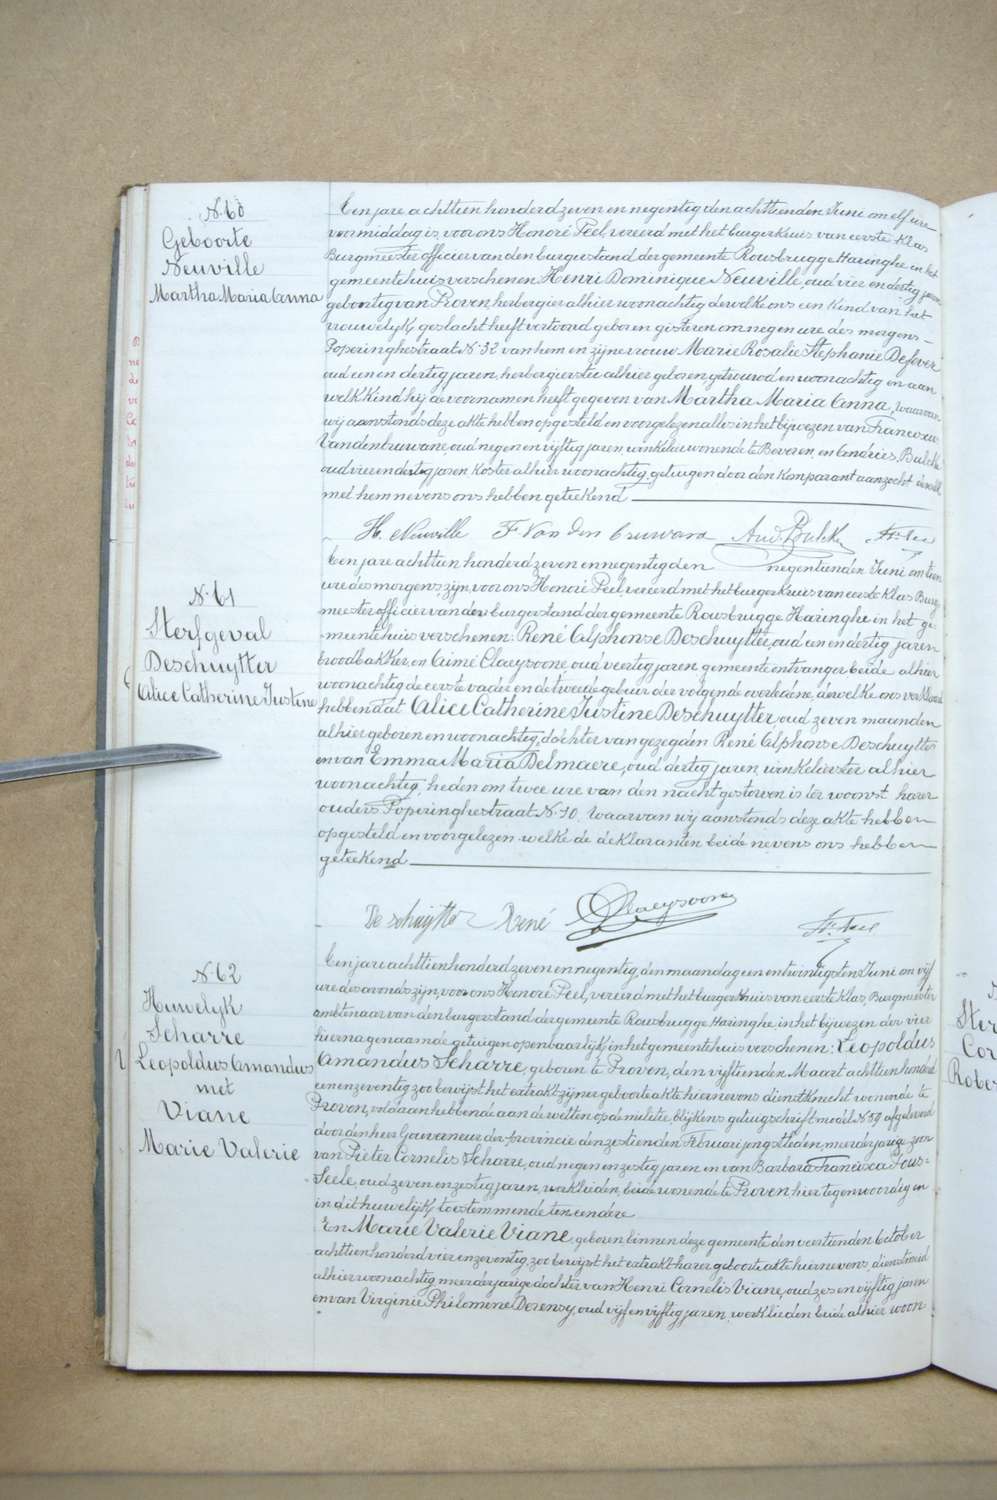 N. 60
Geboorte
Neuville
Martha Maria Anna
Een jare achttien honderd zeven en negentig den achttienden Juni om elf ure
voormiddag is, voor ons Honoré Peel, vereerd met het burgerkruis van eerste Klas
Burgmeester officier van den burgerstand der gemeente Rousbrugge Haringhe in het
gemeentehuis verschenen Henri Dominique Neuville, oud vier en dertig jaren
geboortig van Proven herbergier alhier woonachtig dewelke ons een kind van het
vrouwelijk geslacht heeft vertoond geboren gisteren om negen ure des morgens
Poperinghestraat N. 32 van hem en zijne vrouw Marie Rosalie Stephanie Defever
oud een en dertig jaren, herbergierster alhier geboren, getrouwd en woonachtig en aan
welk kind hij de voornamen heeft gegeven van Martha Maria Anna, waarvan
wij aanstonds deze akte hebben opgesteld en voorgelezen alles in het bijwezen van Franciscus
Vandenbruwane, oud negen en vijftig jaren, winkelier wonende te Beveren, en Andries Bulcke
oud vier en dertig jaren koster alhier woonachtig, getuigen door den komparant aanzocht dewelke
met hem nevens ons hebben geteekend
H. Neuville F. Van Den Bruwane And. Bulcke H. Peel
N. 61
Sterfgeval
Deschuytter
Alice Catherine Justine
Een jare achttien honderd zeven en negentig den negentienden Juni om tien
ure des morgens zijn, voor ons Honoré Peel vereerd met het burgerkruis van eerste Klas Burg
meester officier van den burgerstand der gemeente Rousbrugge Haringhe in het ge-
meentehuis verschenen: René Alphonse Deschuytter, oud een en dertig jaren
broodbakker, en Aimé Claeysoone oud veertig jaren, gemeente ontvanger beide alhier
woonachtig de eerste vader en de tweede gebuur der volgende overledene, dewelke ons verklaard
hebben dat Alice Catherine Justine Deschuytter, oud zeven maanden
alhier geboren en woonachtig, dochter van gezegden René Alphonse Deschuytter
en van Emma Maria Delmaere, oud dertig jaren winkelierster alhier
woonachtig, heden om twee ure van den nacht gestorven is ter woonst harer
ouders Poperinghestraat N. 10. Waarvan wij aanstonds deze akte hebben
opgesteld en voorgelezen welke de deklaranten beide nevens ons hebben
geteekend
De schuytter René Claeysoone H. Peel
N. 62
Huwelyk
Scharre
Leopoldus Amandus
met
Viane
Marie Valerie
Een jare achttien honderd zeven en negentig, den maandag een en twintigsten Juni om vijf
ure des avonds zijn, voor ons Honoré Peel, vereerd met het burgerkruis van eerste klas, Burgmeester
ambtenaar van den burgerstand der gemeente Rousbrugge Haringhe in het bijwezen der vier
hierna genaamde getuigen openbaarlijk in het gemeentehuis verschenen: Leopoldus
Amandus Scharre, geboren te Proven, den vijftienden Maart achttien honderd
een en zeventig zoo bewijst het extrakt zijner geboorteakte hiernevens dienstknecht wonende te
Proven, voldaan hebbende aan de wetten op de melitie blijkens getuigschrift model N. 39 afgeleverd
door den heer Gouverneur der provincie den zestienden Februari jongstleden, meerderjarige zoon
van Pieter Cornelis Scharre, oud negen en zestig jaren en van Barbara Francisca Rous-
Seele, oud zeven en zestig jaren, werklieden, beide wonende te Proven hier tegenwoordig en
in dit huwelijk toestemmende ten eendere
En Marie Valerie Viane, geboren binnen deze gemeente den veertienden October
achttien honderd vier en zeventig, zoo bewijst het extrakt harer geboorteakte hiernevens, dienstmeid
alhier woonachtig, meerderjarige dochter van Henri Cornelis Viane, oud zes en vijftig jaren
en van Virginie Philomene Derensy, oud vijf en vijftig jaren, werklieden beide alhier woon
Ster
Cor
Robe